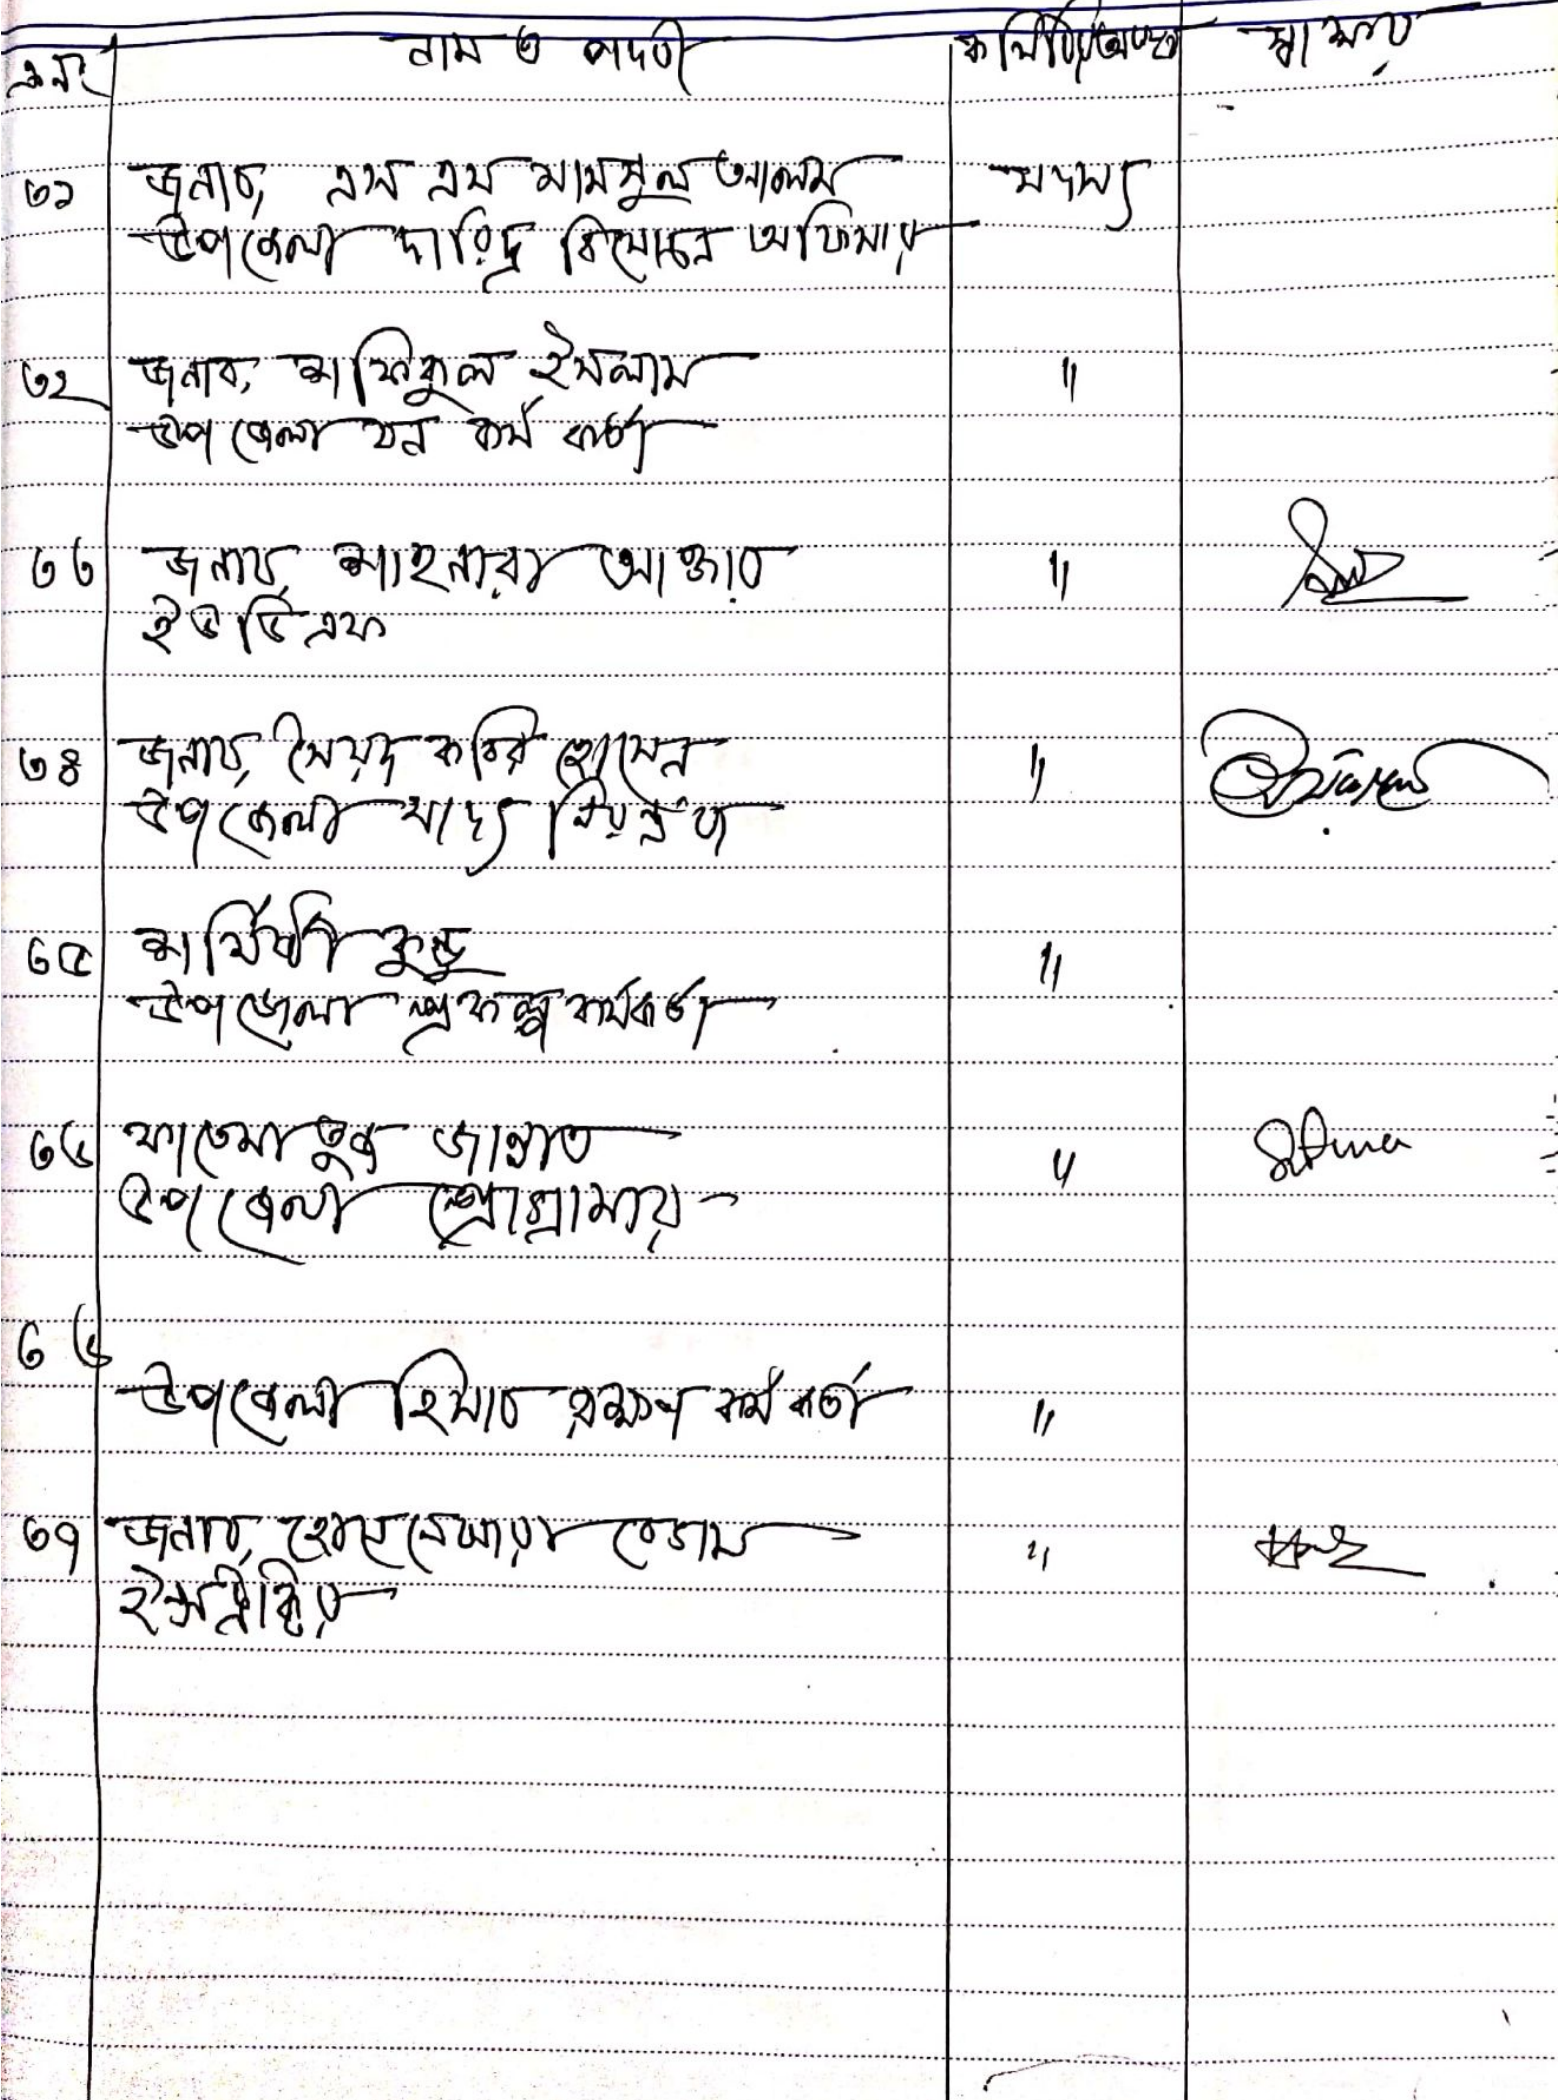 ক্র নং নাম ও পদবী কমিটির অবস্থান স্বাক্ষর
৩১ জনাব, এস এম শামসুল আলম সদস্য
উপজেলা দারিদ্র বিমোচন অফিসার
৩২ জনাব, শফিকুল ইসলাম "
উপজেলা বন কর্মকর্তা
৩৩ জনাব, শাহনারা আক্তার "
ইউডিএফ
৩৪ জনাব, সৈয়দ কবির হোসেন "
উপজেলা খাদ্য নিয়ন্ত্রক
৩৫ শর্মিষ্ঠা কুন্ডু "
উপজেলা প্রকল্প কর্মকর্তা
৩৬ ফাতেমা তুজ জান্নাত "
উপজেলা প্রোগ্রামার
৩৬
উপজেলা হিসাব রক্ষণ কর্মকর্তা "
৩৭ জনাব, হোসনেয়ারা বেগম "
ইন্সট্রাক্টর